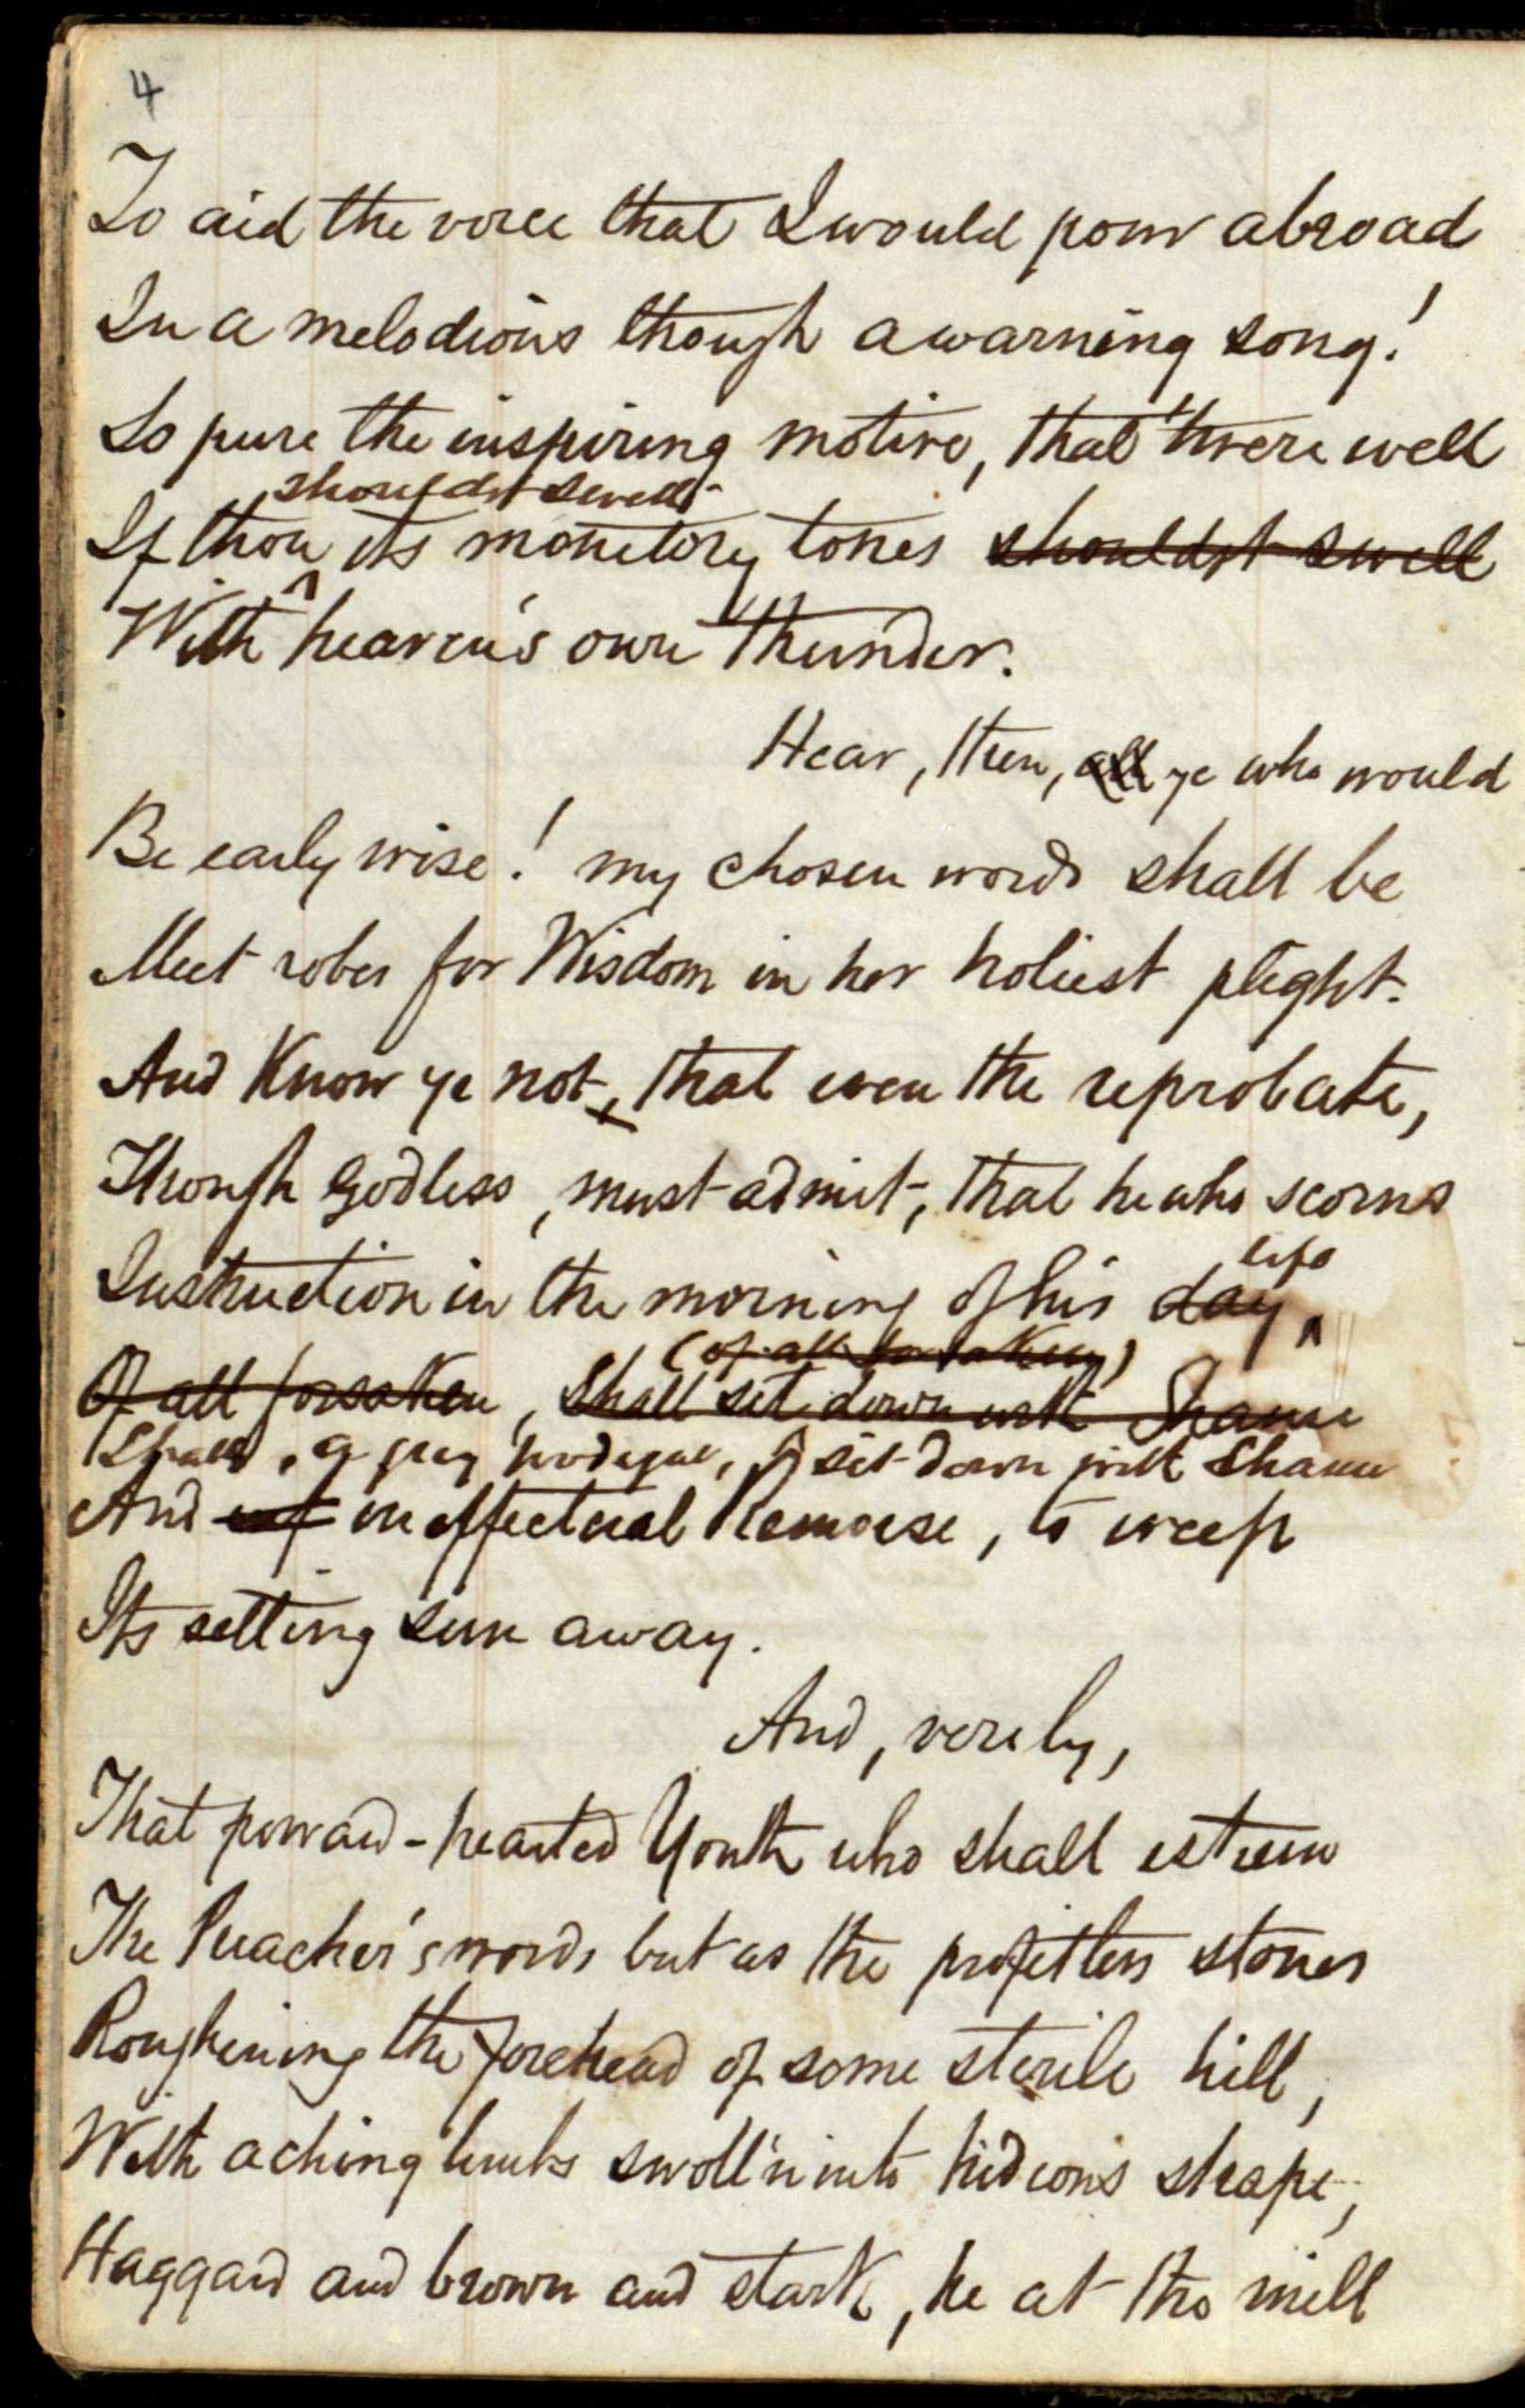 4
To aid the voice that I would pour abroad
In a melodious though a warning song!
So pure the inspiring motive, that 'twere well
shouldst swell
If thou its monitory tones shouldst swell
With heaven's own thunder.
Hear, then, all ye who would
Be early wise! my chosen words shall be
Meet robes for Wisdom in her holiest plight.
And Know ye not, that even the reprobate,
Though Godless, must admit, that he who scorns
life
Instruction in the morning of his day,
(of all forsaken,)
Of all forsaken, shall sit down with Shame
Shall, a grey prodigal, sit down with Shame
And ineffectual Remorse, to weep
Its setting sun away.
And, verily,
That froward-hearted Youth who shall esteem
The Preacher's words but as the profitless stones
Roughening the forehead of some sterile hill,
With aching limbs swoll'n into hideous shape,
Haggard and brown and stark, he at the mill